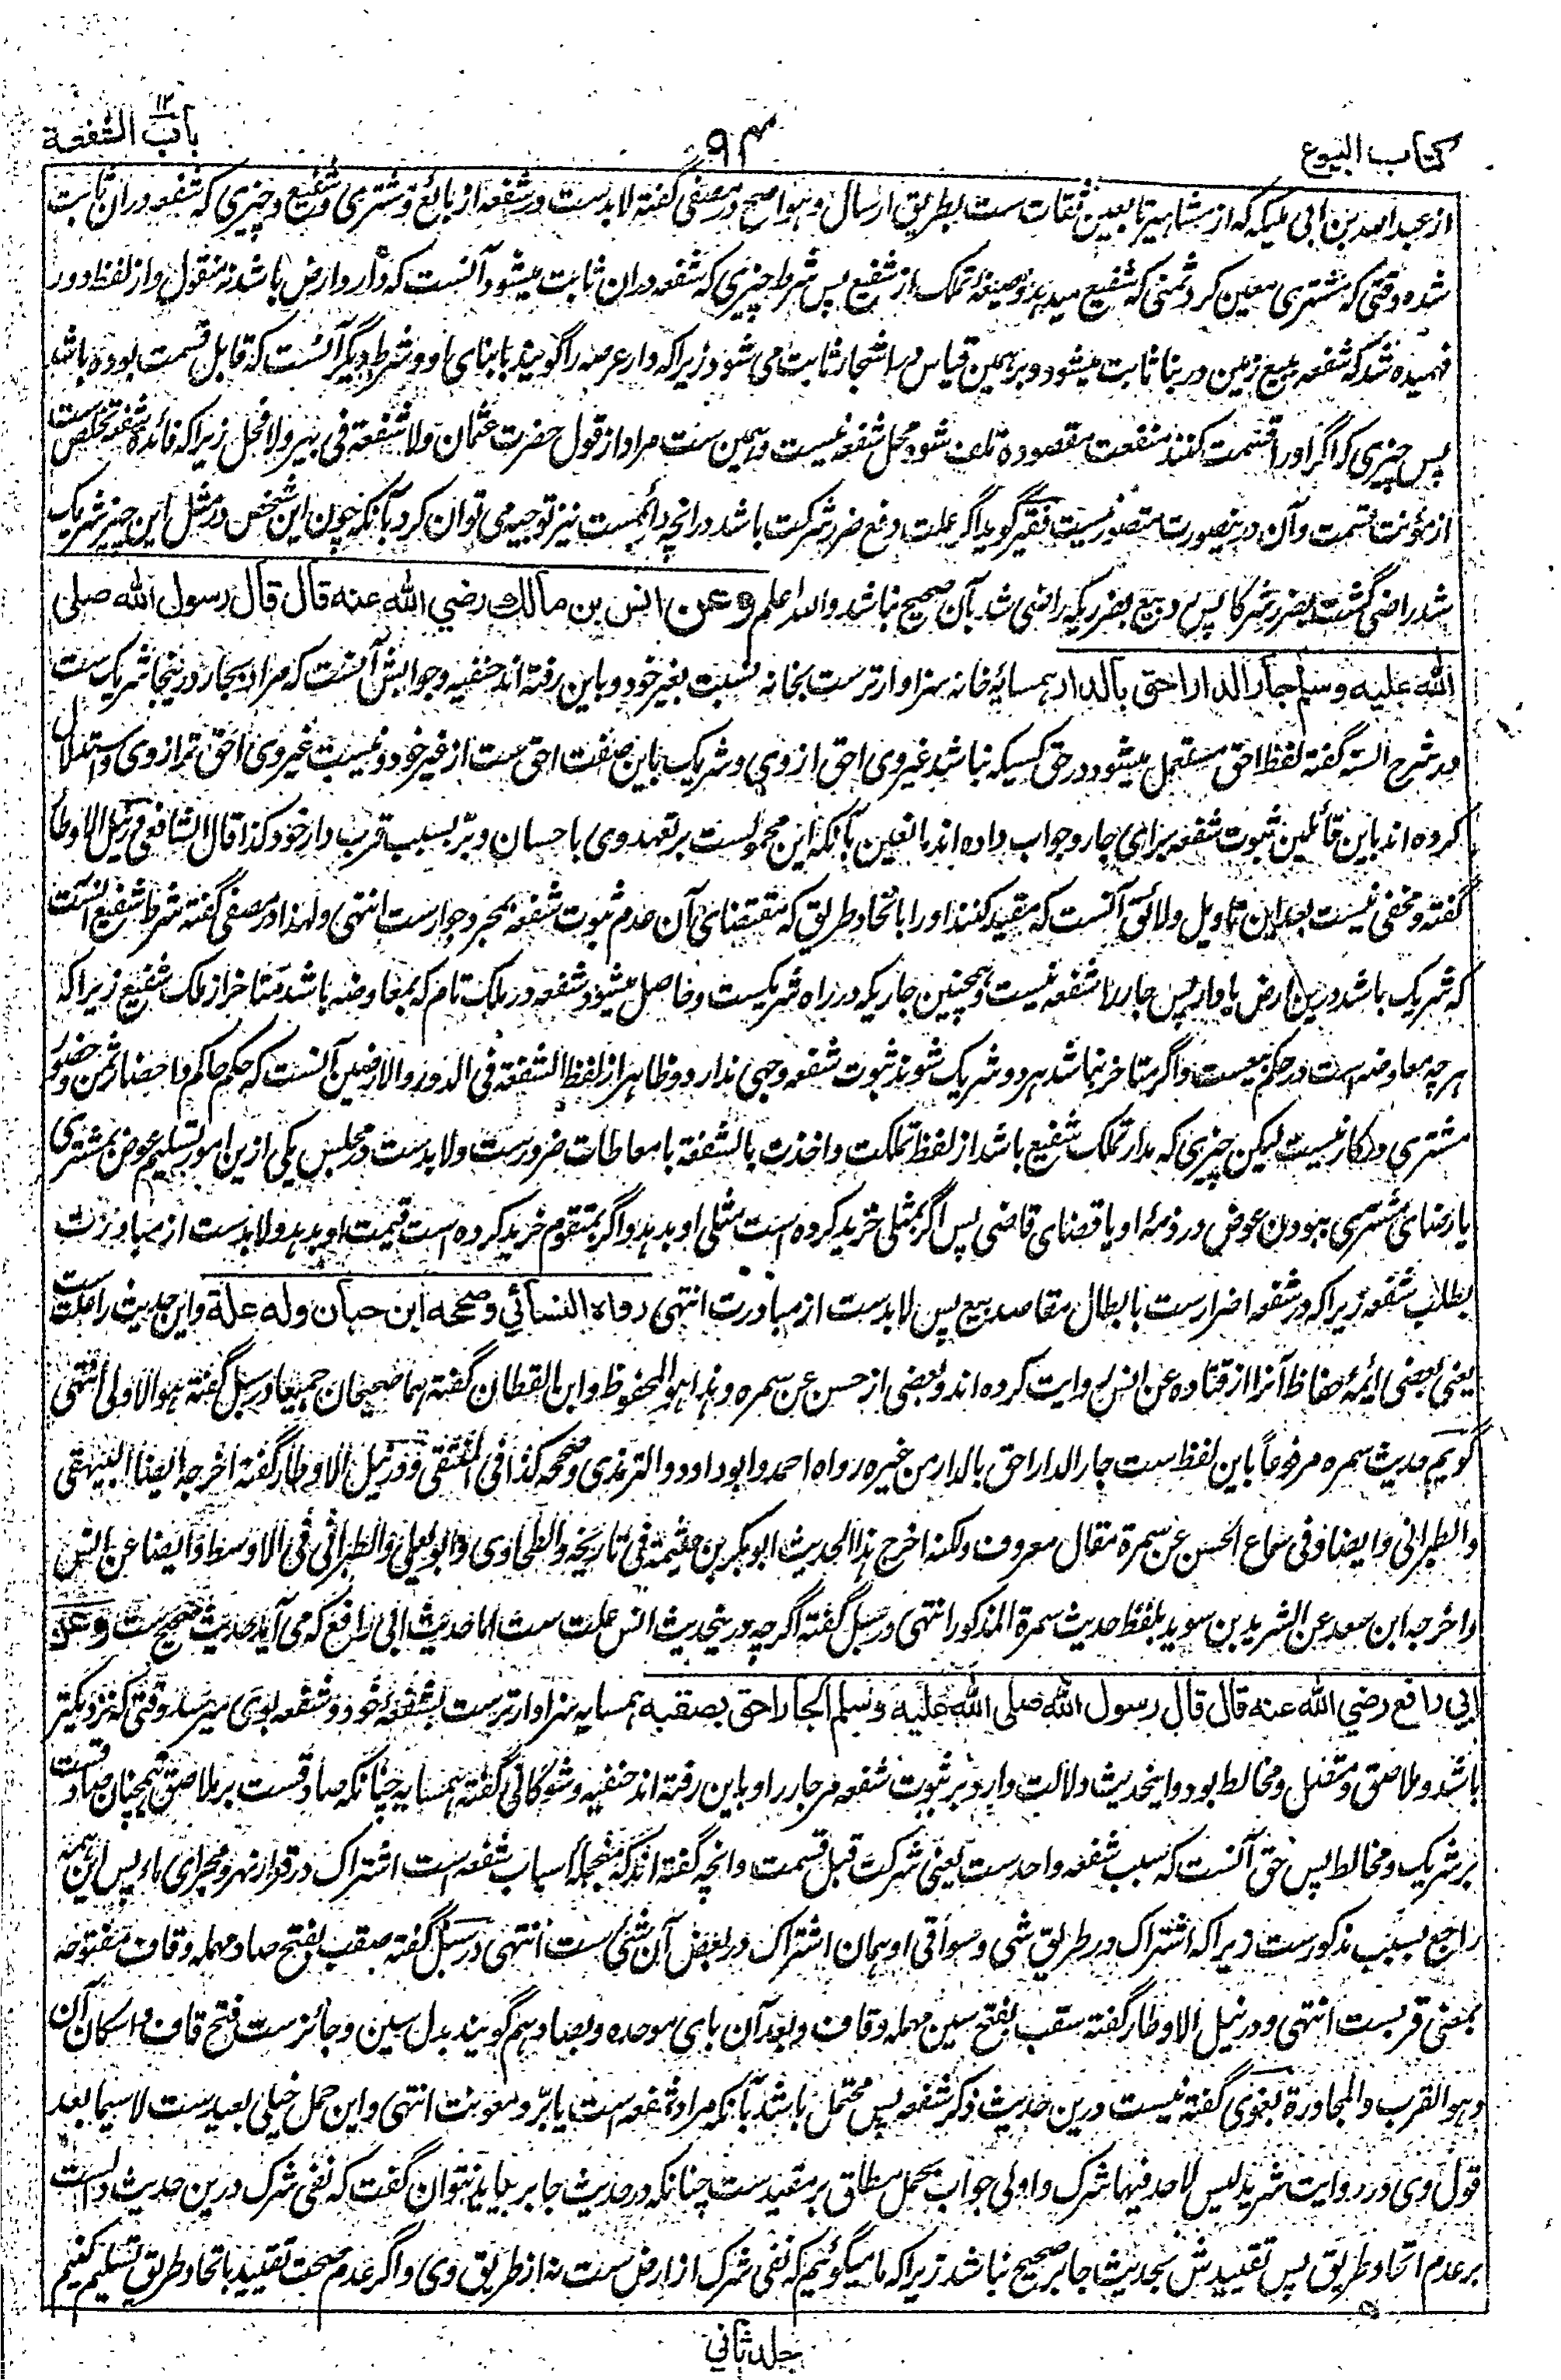 کتاب البیوع
۹۴
باب ۱۲ الشفعة
از عبد الله بن ابی ملیکه که از مشاهیر تابعین ثقات ست بطریق ارسال و هو اصح در مصفی گفته لا بدست در شفعه از بائع و مشتری و شفیع و چیزی که شفعه دران ثابت
شده وقتی که مشتری معین کرد ثمنی که شفیع میدهد و صیغه تملک از شفیع پس شرط چیزی که شفعه دران ثابت میشود آنست که دار و ارض باشد نه منقول و از لفظ دور
فهمیده شد که شفعه ببیع زمین در بنا ثابت میشود و بر همین قیاس در اشجار ثابت می شود زیرا که دار عرصه را گویند با بنای او و شرط دیگر آنست که قابل قسمت بوده باشد
پس چیزی که اگر او را قسمت کنند منفعت مقصوده تلف شود محل شفعه نیست و همین ست مراد از قول حضرت عثمان ولا شفعة فی بیر ولا فحل زیرا که فائده شفعه تخلص ست
از مؤنت قسمت و آن درینصورت متصور نیست فقیر گوید اگر علت دفع ضرر شرکت باشد در انچه دائمست نیز توجیه می توان کرد بآنکه چون این شخص در مثل این چیز شریک
شد راضی گشت بضرر شرکا پس در بیع بضرریکه راضی شد بآن صحیح نباشد والله اعلم وعن انس بن مالك رضي الله عنه قال قال رسول الله صلى
الله عليه وسلم جار الدار احق بالدار همسایه خانه سزاوارترست بخانه نسبت بغیر خود و باین رفته اند حنفیه و جوابش آنست که مراد بجار درینجا شریک ست
در شرح السنه گفته لفظ احق مستعمل میشود در حق کسیکه نباشد غیر وی احق از وی و شریک باین صفت احق ست از غیر خود و نیست غیر وی احق تر از وی و استدلال
کرده اند باین قائلین ثبوت شفعه برای جار و جواب داده اند مانعین بآنکه این محمولست بر تعهد وی باحسان و بر بسبب قرب دار خود کذا قال الشافعی در نیل الاوطار
گفته و مخفی نیست بعد این تاویل و لائق آنست که مقید کنند او را باتحاد طریق که مقتضای آن عدم ثبوت شفعه بمجرد جوارست انتهی و لهذا در مصفی گفته شرط شفیع آنست
که شریک باشد درین ارض یا دار پس جار را شفعه نیست و همچنین جاریکه در راه شریکست و حاصل میشود شفعه در ملک تام که بمعاوضه باشد متاخر از ملک شفیع زیرا که
هر چه معاوضه است در حکم بیعست و اگر متاخر نباشد هر دو شریک شوند ثبوت شفعه وجهی ندارد و ظاهر از لفظ الشفعة فی الدور والارضین آنست که حکم حاکم و احضار ثمن و حضور
مشتری درکار نیست لیکن چیزی که مدار تملک شفیع باشد از لفظ تملکت و اخذت بالشفعة یا معاطات ضرورست و لا بدست در مجلس یکی ازین امور تسلیم عوض بمشتری
یا رضای مشتری ببودن عوض در ذمه او یا قضای قاضی پس اگر بمثلی خرید کرده است مثلی او بدهد و اگر بمتقوم خرید کرده است قیمت او بدهد و لا بدست از مبادرت
بطلب شفعه زیرا که در شفعه اضرارست بابطال مقاصد بیع پس لا بدست از مبادرت انتهی رواه النسائي وصححه ابن حبان وله علة و این حدیث را علت ست
یعنی بعضی ائمه حفاظ آنرا از قتاده عن انس روایت کرده اند و بعضی از حسن عن سمره و هذا هو المحفوظ و ابن القطان گفته هما صحیحان جمیعا در سبل گفته هو الاولی انتهی
گویم حدیث سمره مرفوعاً باین لفظ ست جار الدار احق بالدار من غیره رواه احمد و ابو داود و الترمذی وصححه کذا فی المنتقی و در نیل الاوطار گفته اخرجه ایضا البیهقی
والطبرانی وایضا و فی سماع الحسن عن سمرة مقال معروف ولکنه اخرج هذا الحدیث ابو بکر بن خیثمة فی تاریخه والطحاوی وابو یعلی والطبرانی فی الاوسط وایضا عن انس
واخرجه ابن سعد عن الشرید بن سوید بلفظ حدیث سمرة المذکور انتهی در سبل گفته اگر چه درینحدیث انس علت ست اما حدیث ابی رافع که می آید حدیث صحیح ست وعن
ابي رافع رضي الله عنه قال قال رسول الله صلى الله عليه وسلم الجار احق بصقبه همسایه سزاوارترست بشفعه خود و شفعه بوی میرسد وقتی که نزدیکتر
باشد و ملاصق و متصل و مخالط بود و اینحدیث دلالت دارد بر ثبوت شفعه مر جار را و باین رفته اند حنفیه و شوکانی گفته همسایه چنانکه صادقست بر ملاصق همچنان صادقست
بر شریک و مخالط پس حق آنست که سبب شفعه واحدست یعنی شرکت قبل قسمت و انچه گفته اند که منجمله اسباب شفعه است اشتراک در قرار نهر و مجرای ماء پس این همه
راجع بسبب مذکورست زیرا که اشتراک در طریق شی و سواقی او همان اشتراک در بعض آن شئ ست انتهی در سبل گفته صقب بفتح صاد مهمله و قاف مفتوحه
بمعنی قربست انتهی و در نیل الاوطار گفته سقب بفتح سین مهمله و قاف و بعد آن بای موحده و بصاد هم گویند بدل سین و جائزست فتح قاف و اسکان آن
وهو القرب والمجاورة بغوی گفته نیست درین حدیث ذکر شفعه پس محتمل باشد بآنکه مراد شفعه است یا بر و معونت انتهی و این حمل خیلی بعیدست لا سیما بعد
قول وی در روایت شرید لیس لاحد فیها شرک و اولی جواب بحمل مطلق بر مقیدست چنانکه در حدیث جابر بیاید نتوان گفت که نفی شرک درین حدیث دالست
بر عدم اتحاد طریق پس تقییدش بحدیث جابر صحیح نباشد زیرا که ما میگوئیم که نفی شرک از ارض ست نه از طریق وی و اگر عدم صحت تقیید باتحاد طریق تسلیم کنیم
جلد ثاني